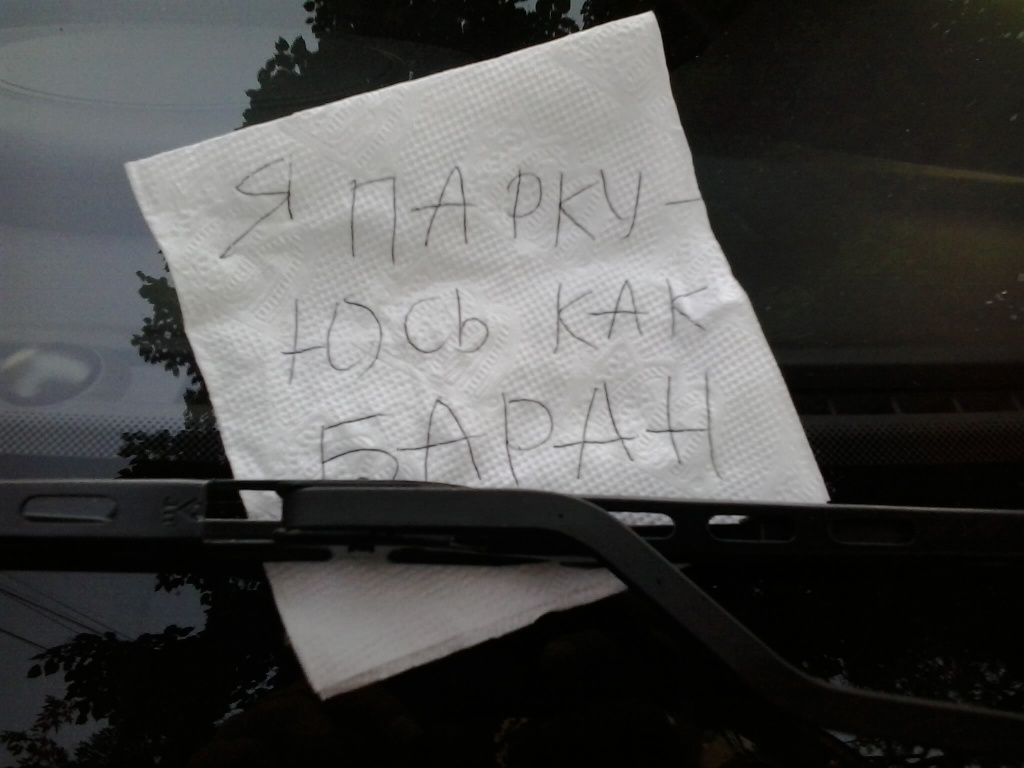 Я ПАРКУ-
ЮСЬ КАК
БАРАН